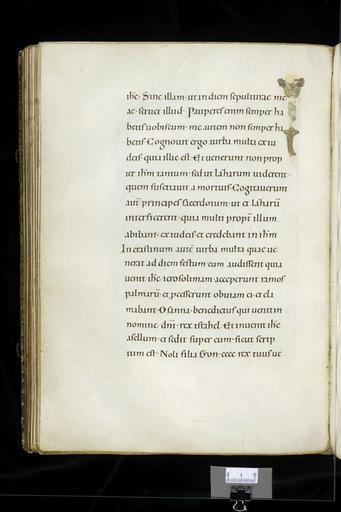 ihc· Sine illam· ut in diem sepulturae me
ae· seruet illud· Pauperes enim semper ha
betis uobiscum· me autem non semper ha
betis· Cognouit ergo turba multa ex iu
deis quia illic est· Et uenerunt non prop
ter ihm tantum· sed ut lazarum uiderent·
quem suscitauit a mortuis· Cogitauerunt
aut principes sacerdotum· ut et lazarū
interficerent· quia multi propt illum
abibant· ex iudeis et credebant in ihm
In crastinum autē turba multa quae ue
nerat ad diem festum· cum audissent quia
uenit ihc ierosolimam· acceperunt ramos
palmarū· et pcesserunt obuiam ei· et cla
mabant· Osanna· benedictus qui uenit in
nomine dni· rex israhel· Et inuenit ihc
asellum· et sedit super eum· sicut scrip
tum est· Noli filia syon· ecce rex tuus ue